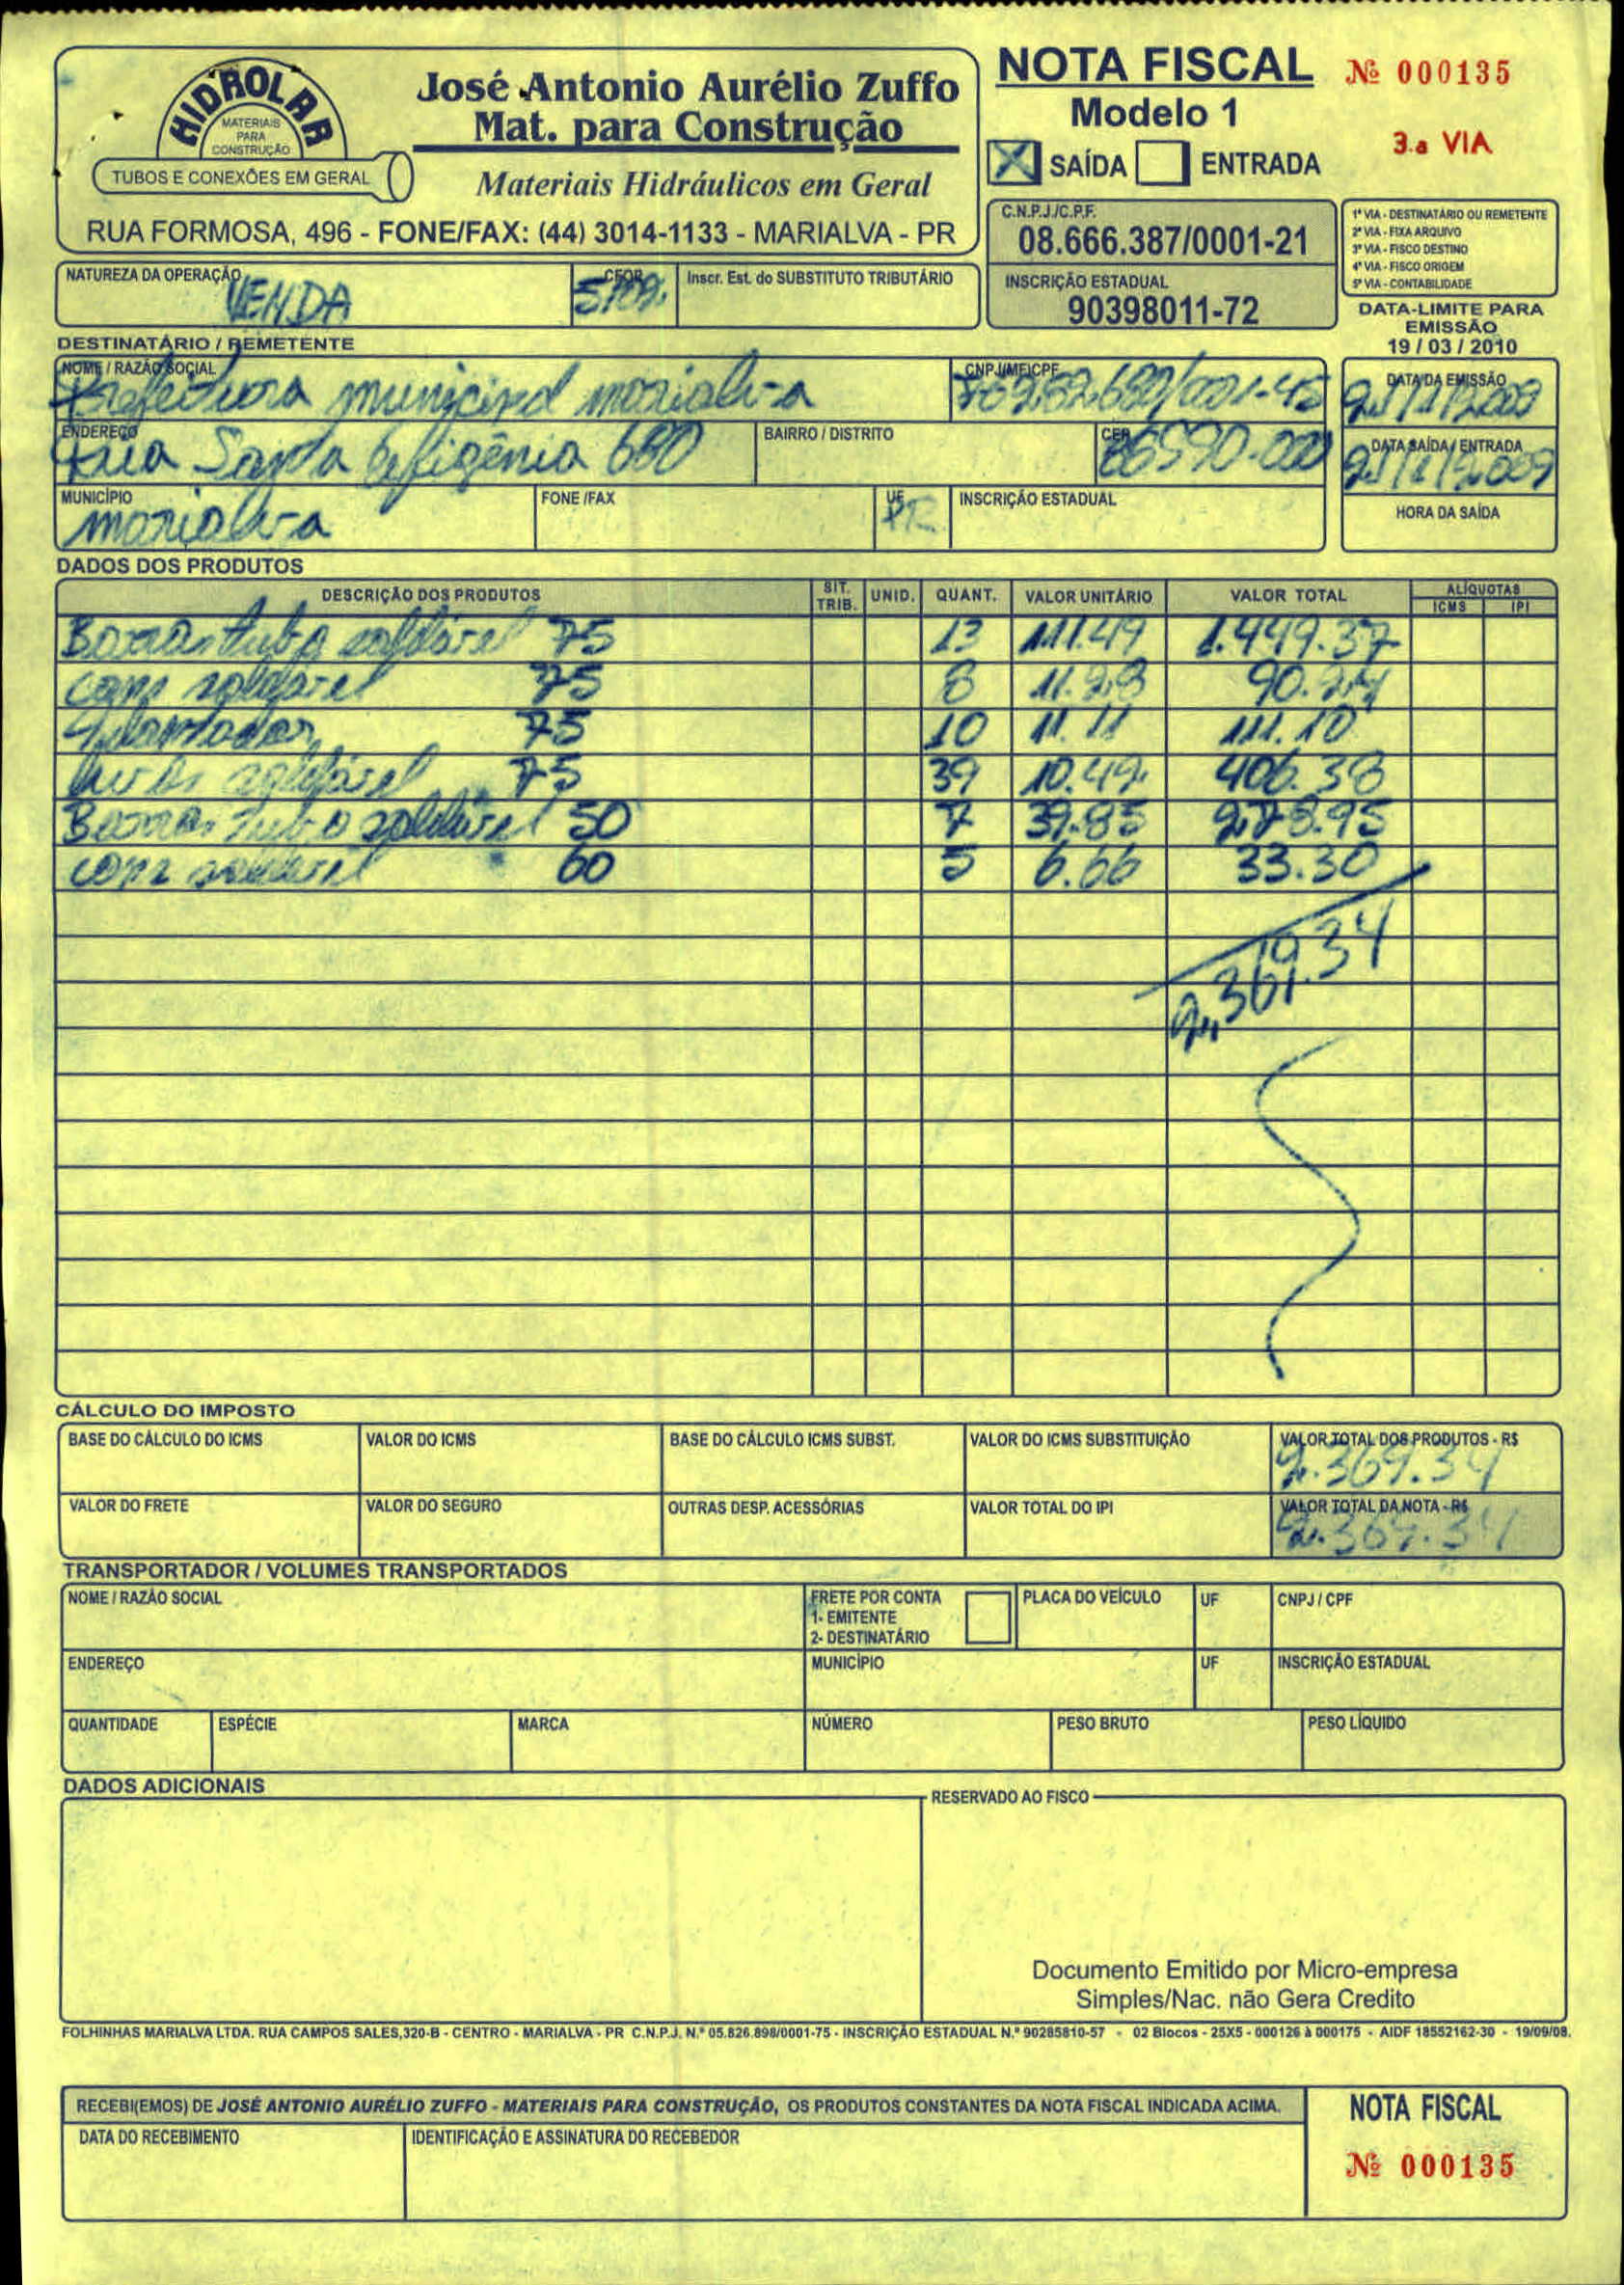 HIDROLAR
MATERIAIS
PARA
CONSTRUÇÃO
TUBOS E CONEXÕES EM GERAL
José Antonio Aurélio Zuffo
Mat. para Construção
Materiais Hidráulicos em Geral
RUA FORMOSA, 496 - FONE/FAX: (44) 3014-1133 - MARIALVA - PR
NOTA FISCAL
Nº 000135
Modelo 1
3.a VIA
X SAÍDA ENTRADA
C.N.P.J./C.P.F.
08.666.387/0001-21
INSCRIÇÃO ESTADUAL
90398011-72
1ª VIA - DESTINATÁRIO OU REMETENTE
2ª VIA - FIXA ARQUIVO
3ª VIA - FISCO DESTINO
4ª VIA - FISCO ORIGEM
5ª VIA - CONTABILIDADE
DATA-LIMITE PARA
EMISSÃO
19 / 03 / 2010
NATUREZA DA OPERAÇÃO CFOP Inscr. Est. do SUBSTITUTO TRIBUTÁRIO
VENDA
DESTINATÁRIO / REMETENTE
NOME / RAZÃO SOCIAL CNPJ/MF/CPF DATA DA EMISSÃO
Prefeitura municipal marialva
ENDEREÇO BAIRRO / DISTRITO CEP DATA SAÍDA / ENTRADA
Rua Santa Efigênia 680 86990-000
MUNICÍPIO FONE /FAX UF INSCRIÇÃO ESTADUAL HORA DA SAÍDA
marialva PR
DADOS DOS PRODUTOS
DESCRIÇÃO DOS PRODUTOS SIT. TRIB. UNID. QUANT. VALOR UNITÁRIO VALOR TOTAL ALÍQUOTAS ICMS IPI
Barras tubo soldável 75 13 111.49 1.449.37
cap soldável 75 8 11.28 90.24
Adaptador 75 10 11.11 111.10
luvas soldável 75 39 10.42 406.38
Barras Tubo soldável 50 7 39.85 278.95
cap soldável 60 5 6.66 33.30
CÁLCULO DO IMPOSTO
BASE DO CÁLCULO DO ICMS VALOR DO ICMS BASE DO CÁLCULO ICMS SUBST. VALOR DO ICMS SUBSTITUIÇÃO VALOR TOTAL DOS PRODUTOS - R$
2.369.34
VALOR DO FRETE VALOR DO SEGURO OUTRAS DESP. ACESSÓRIAS VALOR TOTAL DO IPI VALOR TOTAL DA NOTA - R$
2.369.34
TRANSPORTADOR / VOLUMES TRANSPORTADOS
NOME / RAZÃO SOCIAL FRETE POR CONTA PLACA DO VEÍCULO UF CNPJ / CPF
1- EMITENTE
2- DESTINATÁRIO
ENDEREÇO MUNICÍPIO UF INSCRIÇÃO ESTADUAL
QUANTIDADE ESPÉCIE MARCA NÚMERO PESO BRUTO PESO LÍQUIDO
DADOS ADICIONAIS
RESERVADO AO FISCO
Documento Emitido por Micro-empresa
Simples/Nac. não Gera Credito
FOLHINHAS MARIALVA LTDA. RUA CAMPOS SALES,320-B - CENTRO - MARIALVA - PR C.N.P.J. N.º 05.826.898/0001-75 - INSCRIÇÃO ESTADUAL N.º 90285810-57 - 02 Blocos - 25X5 - 000126 à 000175 - AIDF 18552162-30 - 19/09/08.
RECEBI(EMOS) DE JOSÉ ANTONIO AURÉLIO ZUFFO - MATERIAIS PARA CONSTRUÇÃO, OS PRODUTOS CONSTANTES DA NOTA FISCAL INDICADA ACIMA.
DATA DO RECEBIMENTO IDENTIFICAÇÃO E ASSINATURA DO RECEBEDOR
NOTA FISCAL
Nº 000135